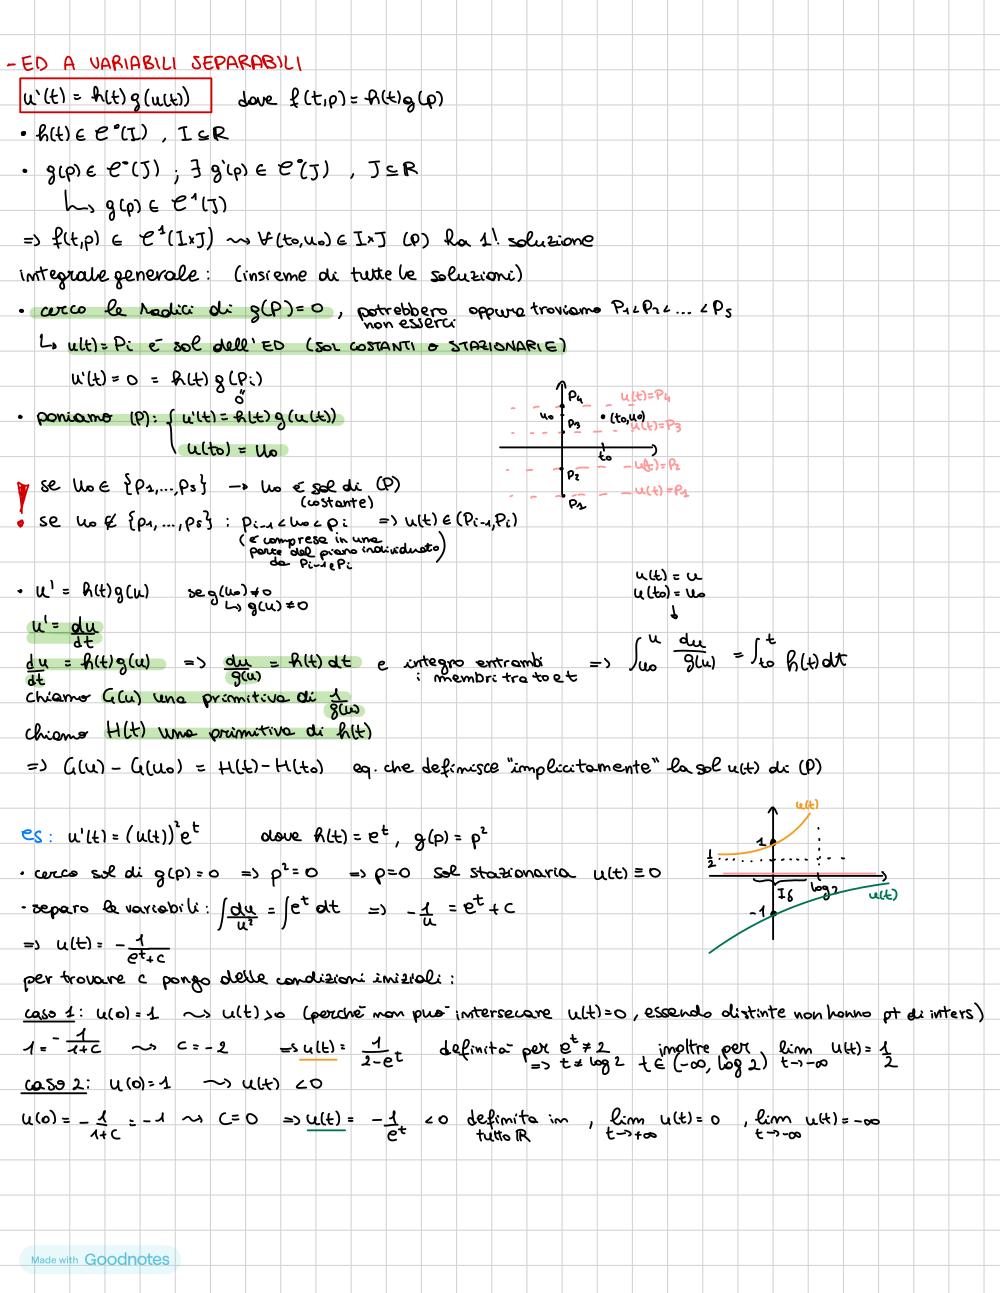 - ED A VARIABILI SEPARABILI
u'(t) = h(t) g(u(t)) dove f(t,p) = h(t)g(p)
• h(t) ∈ C°(I) , I ⊆ R
• g(p) ∈ C°(J) ; ∃ g'(p) ∈ C°(J) , J ⊆ R
↳ g(p) ∈ C¹(J)
=> f(t,p) ∈ C¹(I×J) ⇝ ∀(t0,u0) ∈ I×J (P) ha 1! soluzione
integrale generale : (insieme di tutte le soluzioni)
• cerco le radici di g(P)=0 , potrebbero non esserci oppure troviamo P1<P2<... <Ps
↳ u(t)= Pi è sol dell'ED (SOL COSTANTI O STAZIONARIE)
u'(t) = 0 = h(t) g(Pi)
"
0
• poniamo (P): { u'(t) = h(t) g(u(t))
u(to) = uo
P4
u(t)=P4
uo
• (to,uo)
P3
u(t)=P3
to
u(t)=P2
P2
u(t)=P1
P1
! se uo ∈ {P1,...,Ps} → uo è sol di (P)
(costante)
• se uo ∉ {p1,...,ps} : pi-1 < uo < pi => u(t) ∈ (Pi-1,Pi)
(è compresa in una
parte del piano individuato)
da Pi-1 e Pi
• u' = h(t)g(u) se g(uo) ≠ 0
↳ g(u) ≠ 0
u(t) = u
u(to) = uo
↓
u' = du/dt
du/dt = h(t)g(u) => du/g(u) = h(t) dt e integro entrambi i membri tra to e t => ∫uo^u du/g(u) = ∫to^t h(t)dt
chiamo G(u) una primitiva di 1/g(u)
chiamo H(t) una primitiva di h(t)
=> G(u) - G(uo) = H(t) - H(to) eq. che definisce "implicitamente" la sol u(t) di (P)
es: u'(t) = (u(t))² e^t dove h(t) = e^t, g(p) = p²
• cerco sol di g(p) = 0 => p² = 0 => p=0 sol stazionaria u(t) ≡ 0
• separo le variabili : ∫ du/u² = ∫ e^t dt => - 1/u = e^t + c
=> u(t) = - 1/(e^t + c)
u(t)
1
1/2
Iδ
log2
u(t)
-1
per trovare c pongo delle condizioni iniziali :
caso 1 : u(0) = 1 ⇝ u(t) >0 (perché non può intersecare u(t)=0 , essendo distinte non hanno pt di inters)
1 = - 1/(1+C) ⇝ C = -2 => u(t) = 1/(2-e^t) definita per e^t ≠ 2 => t ≠ log 2 inoltre per t ∈ (-∞, log 2) lim t→-∞ u(t) = 1/2
caso 2 : u(0) = 1 ⇝ u(t) < 0
u(0) = - 1/(1+C) = -1 ⇝ C = 0 => u(t) = - 1/e^t < 0 definita in tutto R , lim t→+∞ u(t) = 0 , lim t→-∞ u(t) = -∞
Made with Goodnotes